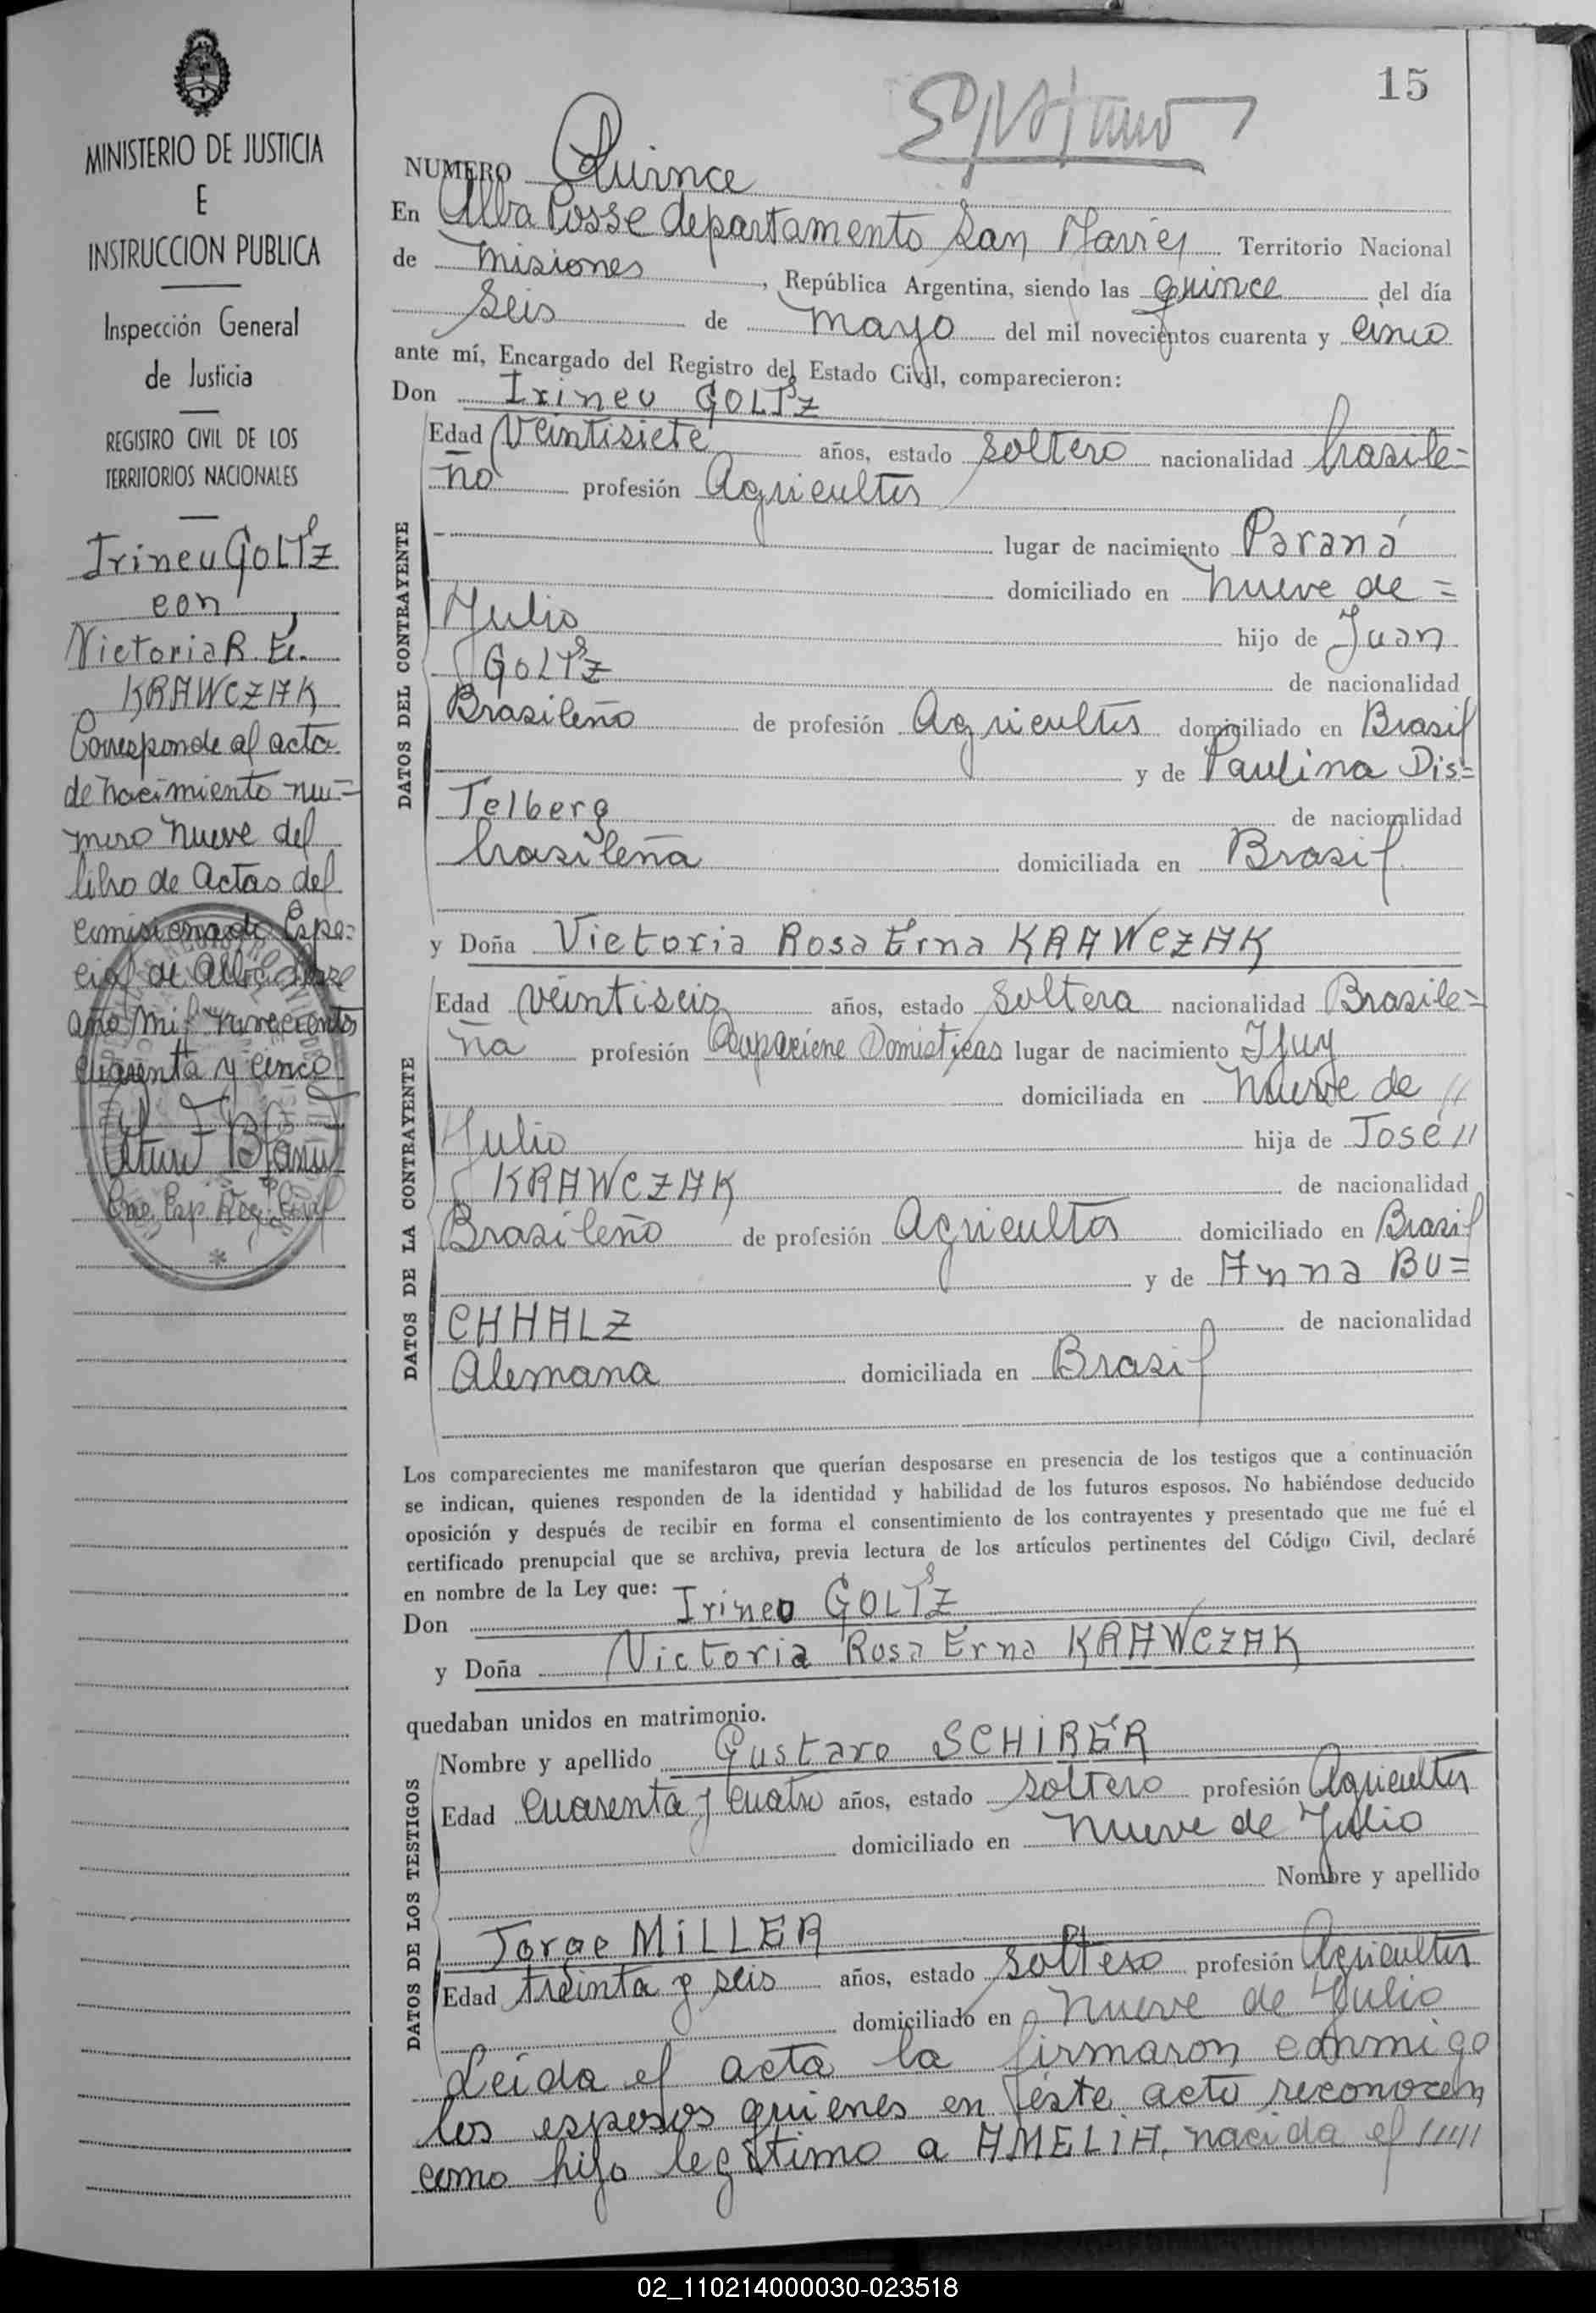 15
MINISTERIO DE JUSTICIA
E
INSTRUCCION PUBLICA
Inspección General
de Justicia
REGISTRO CIVIL DE LOS
TERRITORIOS NACIONALES
Irineu GOLTZ
con
Victoria R. E.
KRAWCZAK
Corresponde al acta
de nacimiento nu=
mero nueve del
libro de Actas del
comisionado Espe=
cial de Alba Posse
año mil novecientos
cuarenta y cinco
NUMERO Quince
En Alba Posse departamento San Javier Territorio Nacional
de Misiones, República Argentina, siendo las quince del día
seis de mayo del mil novecientos cuarenta y cinco
ante mí, Encargado del Registro del Estado Civil, comparecieron:
Don Irineu GOLTZ
DATOS DEL CONTRAYENTE
Edad Veintisiete años, estado soltero nacionalidad brasile=
ño profesión Agricultor
lugar de nacimiento Paraná
domiciliado en nueve de =
Julio hijo de Juan
GOLTZ de nacionalidad
Brasileño de profesión Agricultor domiciliado en Brasil
y de Paulina Dis=
Telberg de nacionalidad
brasileña domiciliada en Brasil
y Doña Victoria Rosa Erna KRAWCZAK
DATOS DE LA CONTRAYENTE
Edad veintiseis años, estado soltera nacionalidad Brasile=
ña profesión Domesticas lugar de nacimiento Ijuy
domiciliada en nueve de //
Julio hija de José //
KRAWCZAK de nacionalidad
Brasileño de profesión Agricultor domiciliado en Brasil
y de Anna BU=
CHHALZ de nacionalidad
Alemana domiciliada en Brasil
Los comparecientes me manifestaron que querían desposarse en presencia de los testigos que a continuación
se indican, quienes responden de la identidad y habilidad de los futuros esposos. No habiéndose deducido
oposición y después de recibir en forma el consentimiento de los contrayentes y presentado que me fué el
certificado prenupcial que se archiva, previa lectura de los artículos pertinentes del Código Civil, declaré
en nombre de la Ley que:
Don Irineo GOLTZ
y Doña Victoria Rosa Erna KRAWCZAK
quedaban unidos en matrimonio.
DATOS DE LOS TESTIGOS
Nombre y apellido Gustavo SCHIRER
Edad cuarenta y cuatro años, estado soltero profesión Agricultor
domiciliado en nueve de Julio
Nombre y apellido
Jorge MiLLER
Edad treinta y seis años, estado soltero profesión Agricultor
domiciliado en nueve de Julio
Leida el acta la firmaron conmigo
los esposos quienes en éste acto reconocen
como hijo legitimo a AMELiA, nacida el /////
02_110214000030-023518